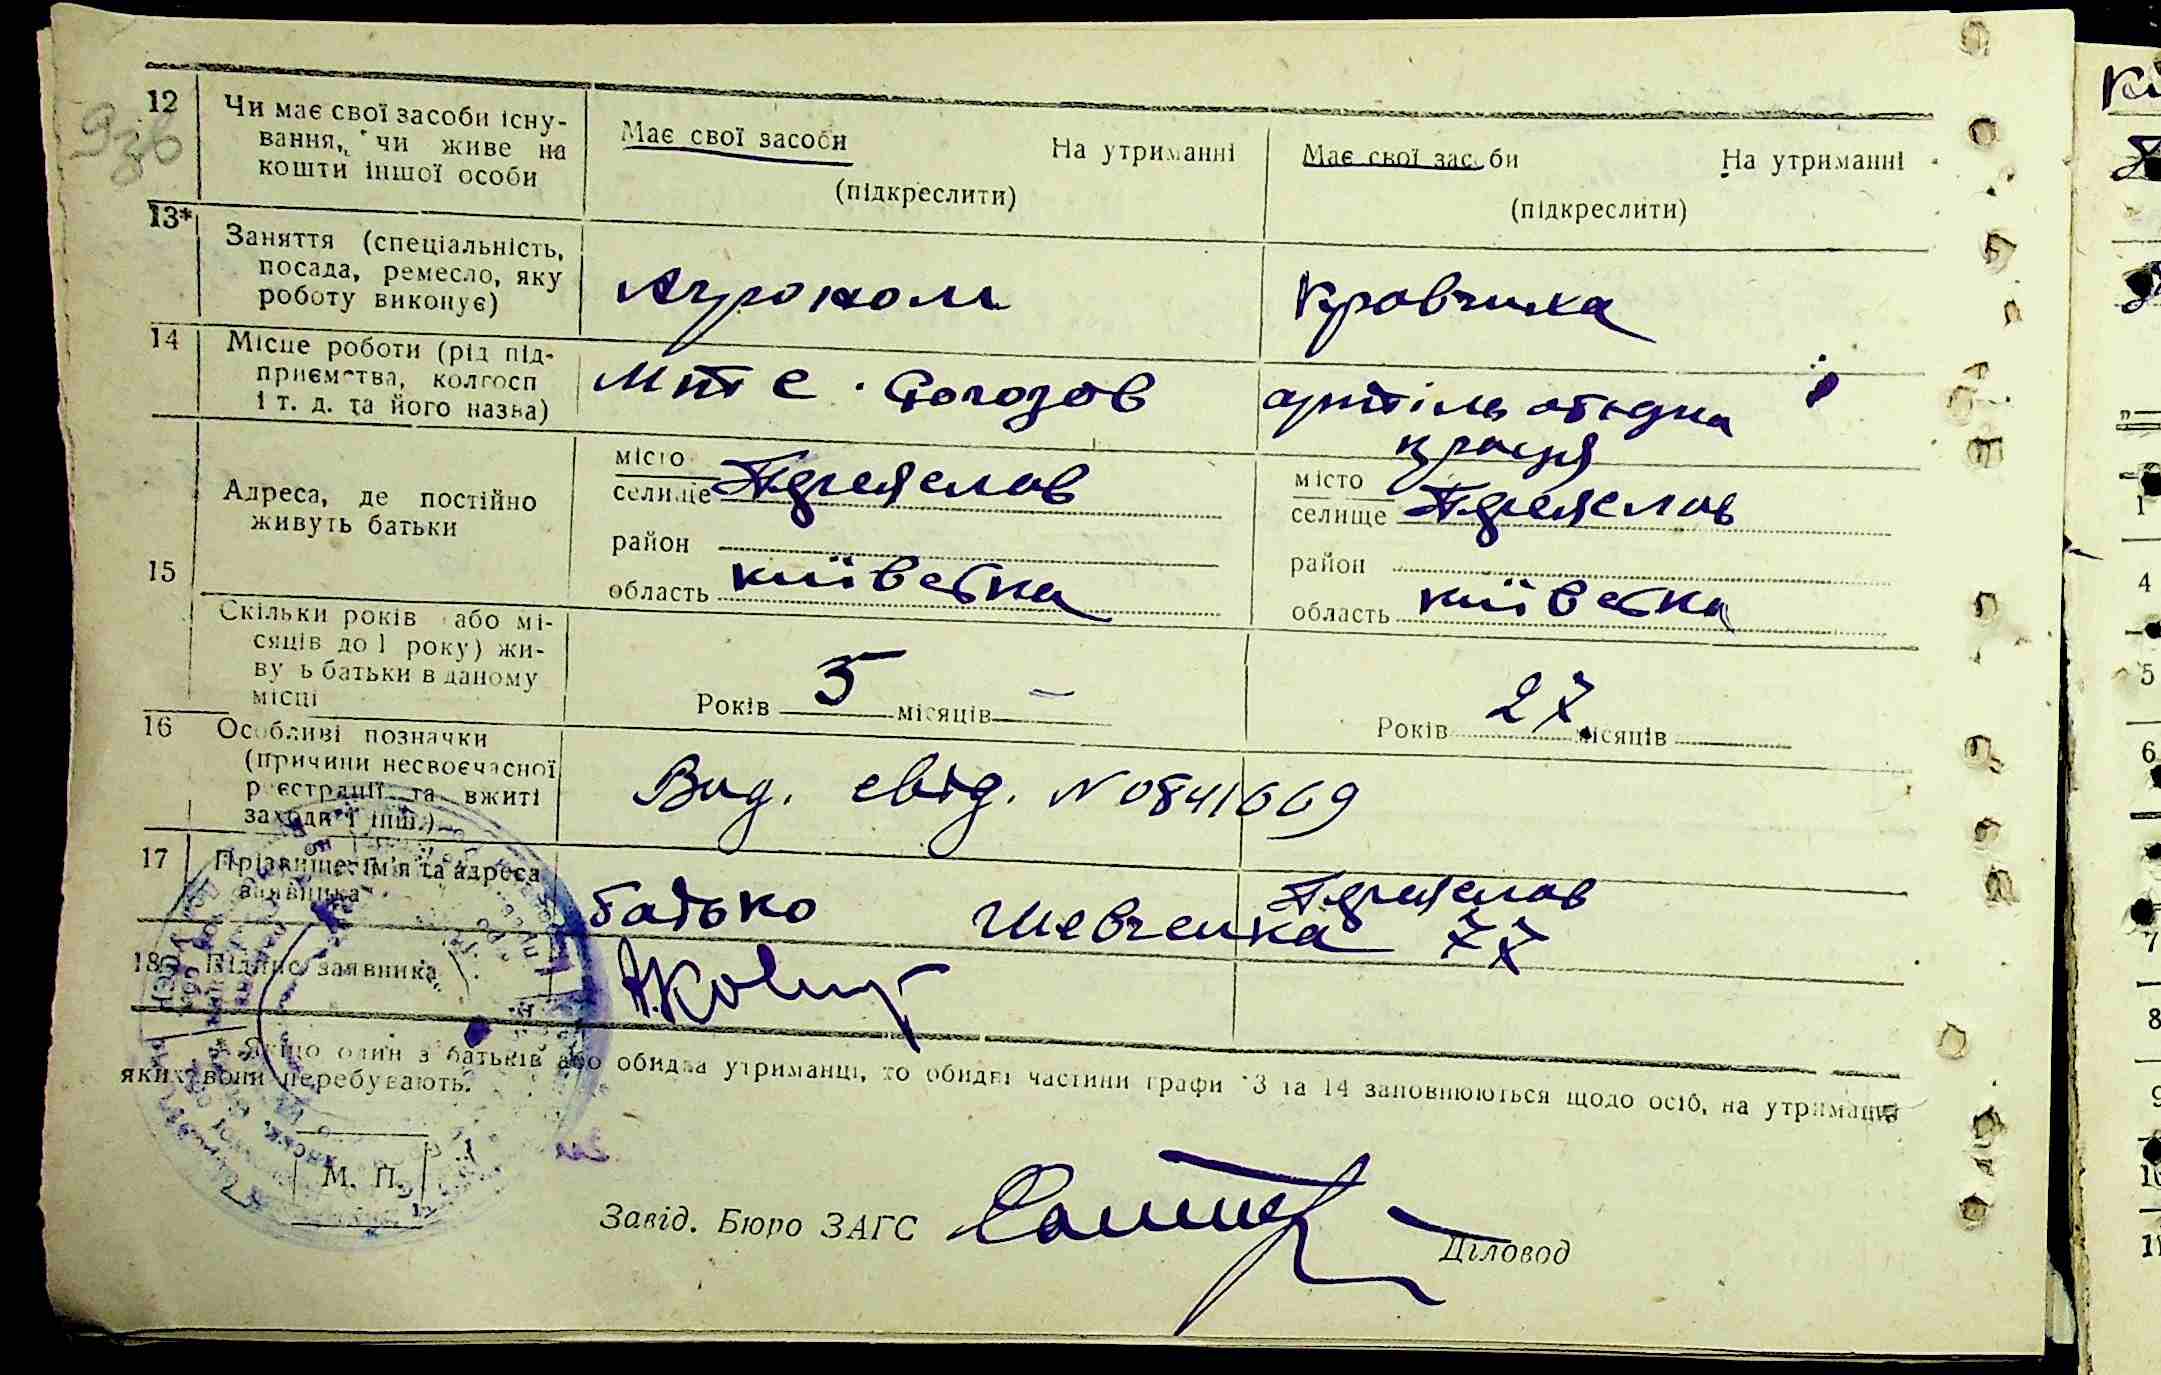 93б
12 Чи має свої засоби існу-
вання, чи живе на
кошти іншої особи
Має свої засоби На утриманні
(підкреслити)
Має свої засоби На утриманні
(підкреслити)
13* Заняття (спеціальність,
посада, ремесло, яку
роботу виконує)
Агроном
Кравчиха
14 Місце роботи (рід під-
приємства, колгосп
і т. д. та його назва)
МТС
артіль
праця
Адреса, де постійно
живуть батьки
місто
селище Переяслав
район
область київська
місто
селище Переяслав
район
область київська
15
Скільки років або мі-
сяців до 1 року) жи-
вуть батьки в даному
місці
Років 5 місяців –
Років 27 місяців
16 Особливі позначки
(причини несвоєчасної
реєстрації та вжиті
заходи і інш.)
Вид. свід. N 0841669
17 Прізвище, ім'я та адреса
заявника
батько Переяслав
Шевченка 77
18 Підпис заявника
* Якщо один з батьків або обидва утриманці, то обидві частини графи 13 та 14 заповнюються щодо осіб, на утриманні
яких вони перебувають.
М. П.
Завід. Бюро ЗАГС
Діловод
4
5
6
7
8
9
10
11